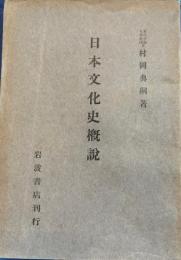 村岡典嗣著
日本文化史概説
岩波書店刊行